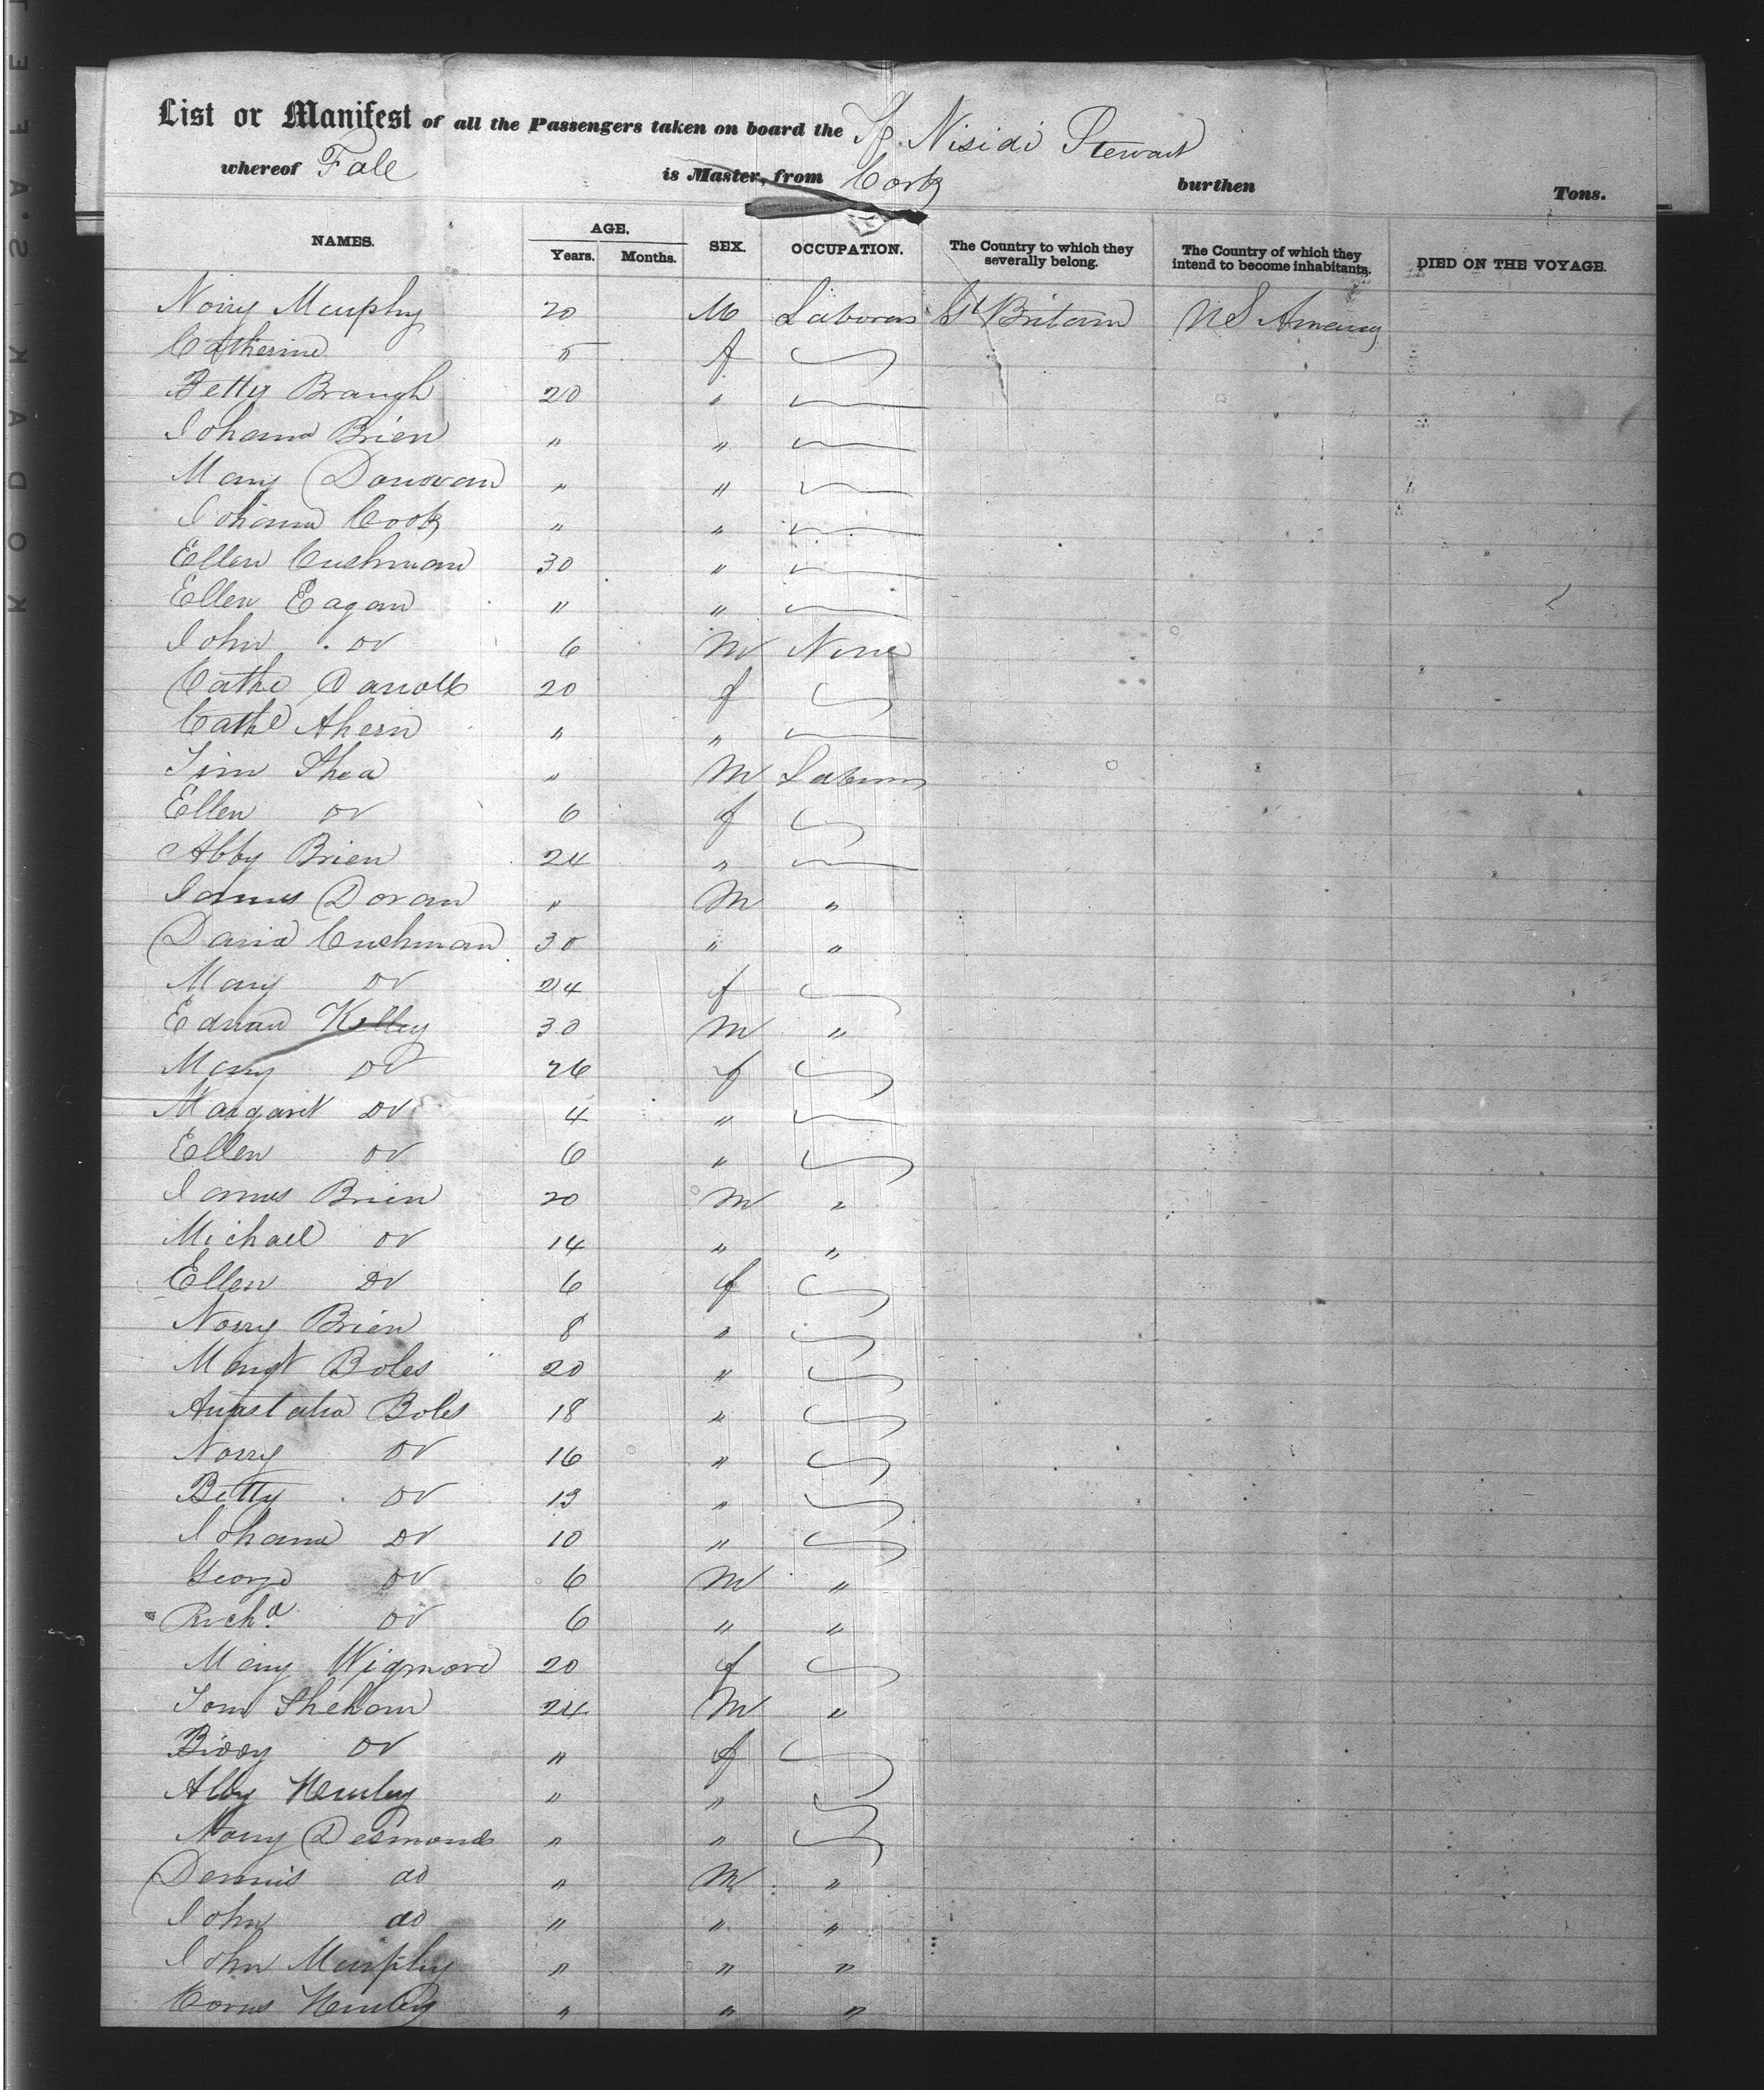 List or Manifest of all the Passengers taken on board the Nisidi Stewart
whereof Fale is Master, from Cork burthen Tons.
NAMES. AGE. Years. Months. SEX. OCCUPATION. The Country to which they severally belong. The Country of which they intend to become inhabitants. DIED ON THE VOYAGE.
Norry Murphy 20 M Laborer Gt Britain America
Catherine 5 f
Betty Braugh 20 "
Johana Brien " "
Mary Donovan " "
Johana Cook " "
Ellen Cushman 30 "
Ellen Eagan " "
John Do 6 M None
Cathe Carroll 20 f
Cathe Ahern " "
Tim Shea " M Laborer
Ellen Do 6 f
Abby Brien 24 "
James Doran " M "
David Cushman 30 " "
Mary Do 24 f
Edward Kelley 30 M "
Mary Do 26 f
Margaret Do 4 "
Ellen Do 6 "
James Brien 20 M "
Michael Do 14 " "
Ellen Do 6 f
Norry Brien 8 "
Margt Boles 20 "
Anastatia Boles 18 "
Norry Do 16 "
Betty Do 13 "
Johana Do 10 "
George Do 6 M "
Richd Do 6 " "
Mary Wigmore 20 f
Tom Shehan 24 M "
Biddy Do " f
Abby Hurley " "
Mary Desmond " "
Dennis do " M "
John do " " "
John Murphy " " "
Corns Hurley " " "
KODAK·SAFE